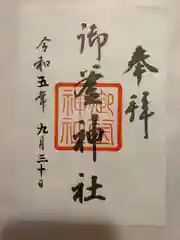 奉拝
御釜神社
令和五年 九月三十日